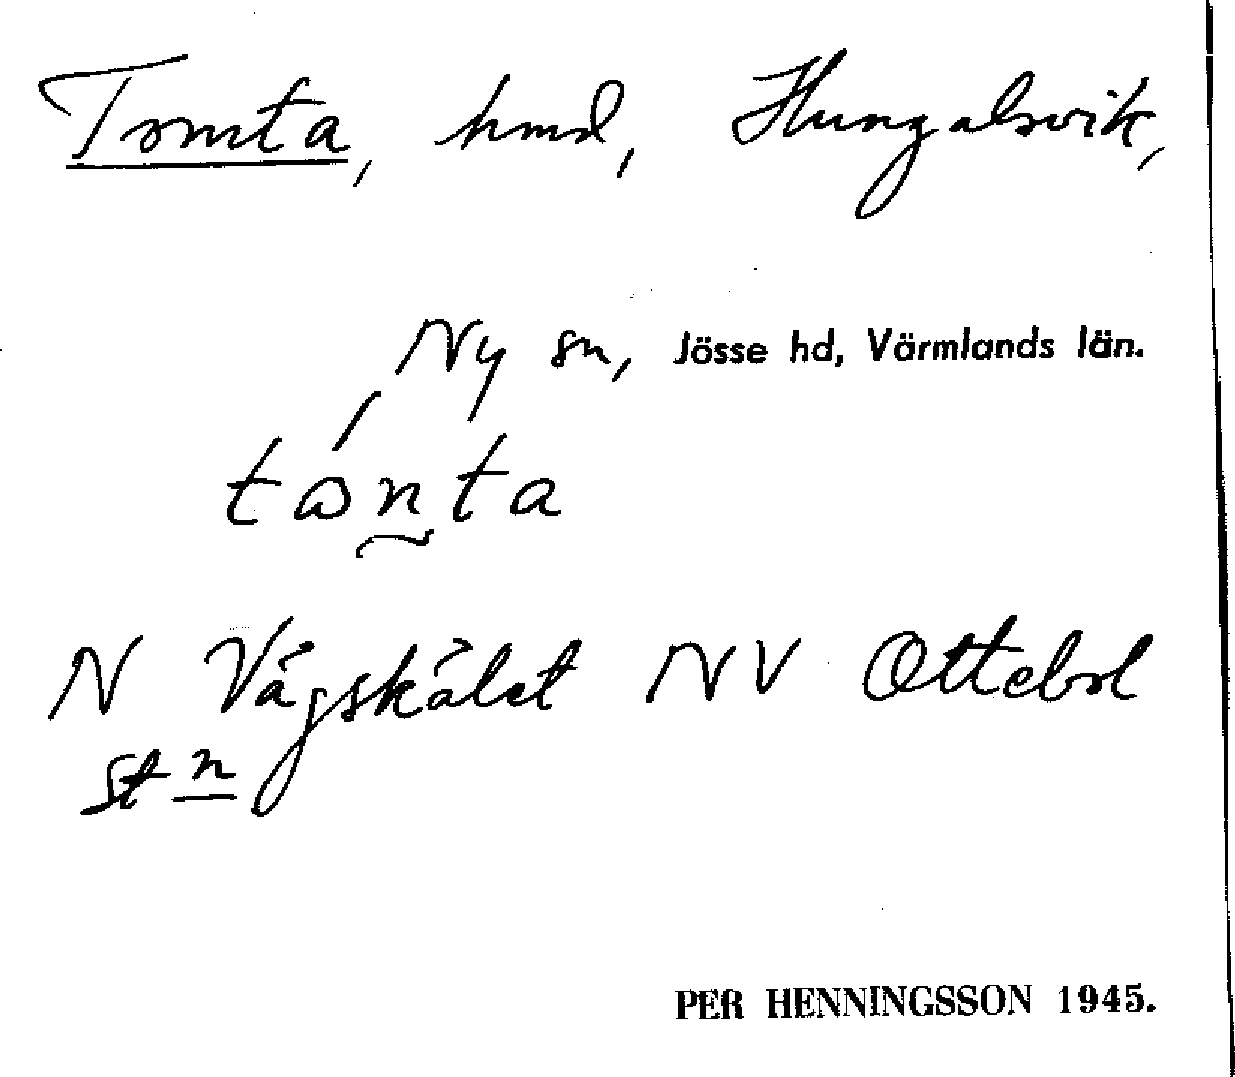 Tomta, hmd, Hungalsvik,
Ny sn, Jösse hd, Värmlands län.
tɷ́n̰ta
N Vågskälet NV Ottebol
st n
PER HENNINGSSON 1945.